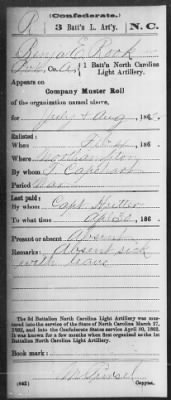 R
(Confederate.)
3 Batt'n L. Art'y. N.C.
Benj. E. Rook
Co. 1 Batt'n North Carolina Light Artillery.
Appears on
Company Muster Roll
of the organization named above,
for July & Aug, 186
Enlisted:
When Feb 186
Where Northampton
By whom
Period War
Last paid:
By whom Capt Sutton
To what time Apl 30, 186
Present or absent Absent
Remarks: Absent sick
with leave
The 3d Battalion North Carolina Light Artillery was mustered into the service of the State of North Carolina March 17, 1862, and into the Confederate States service April 30, 1862. It was known for a few months when first organized as the 1st Battalion North Carolina Light Artillery.
Book mark:
(642)
Copyist.